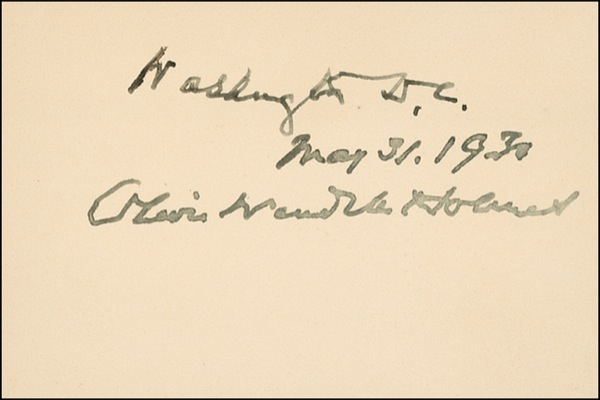 Washington D.C.
May 31. 1930
Oliver Wendell Holmes